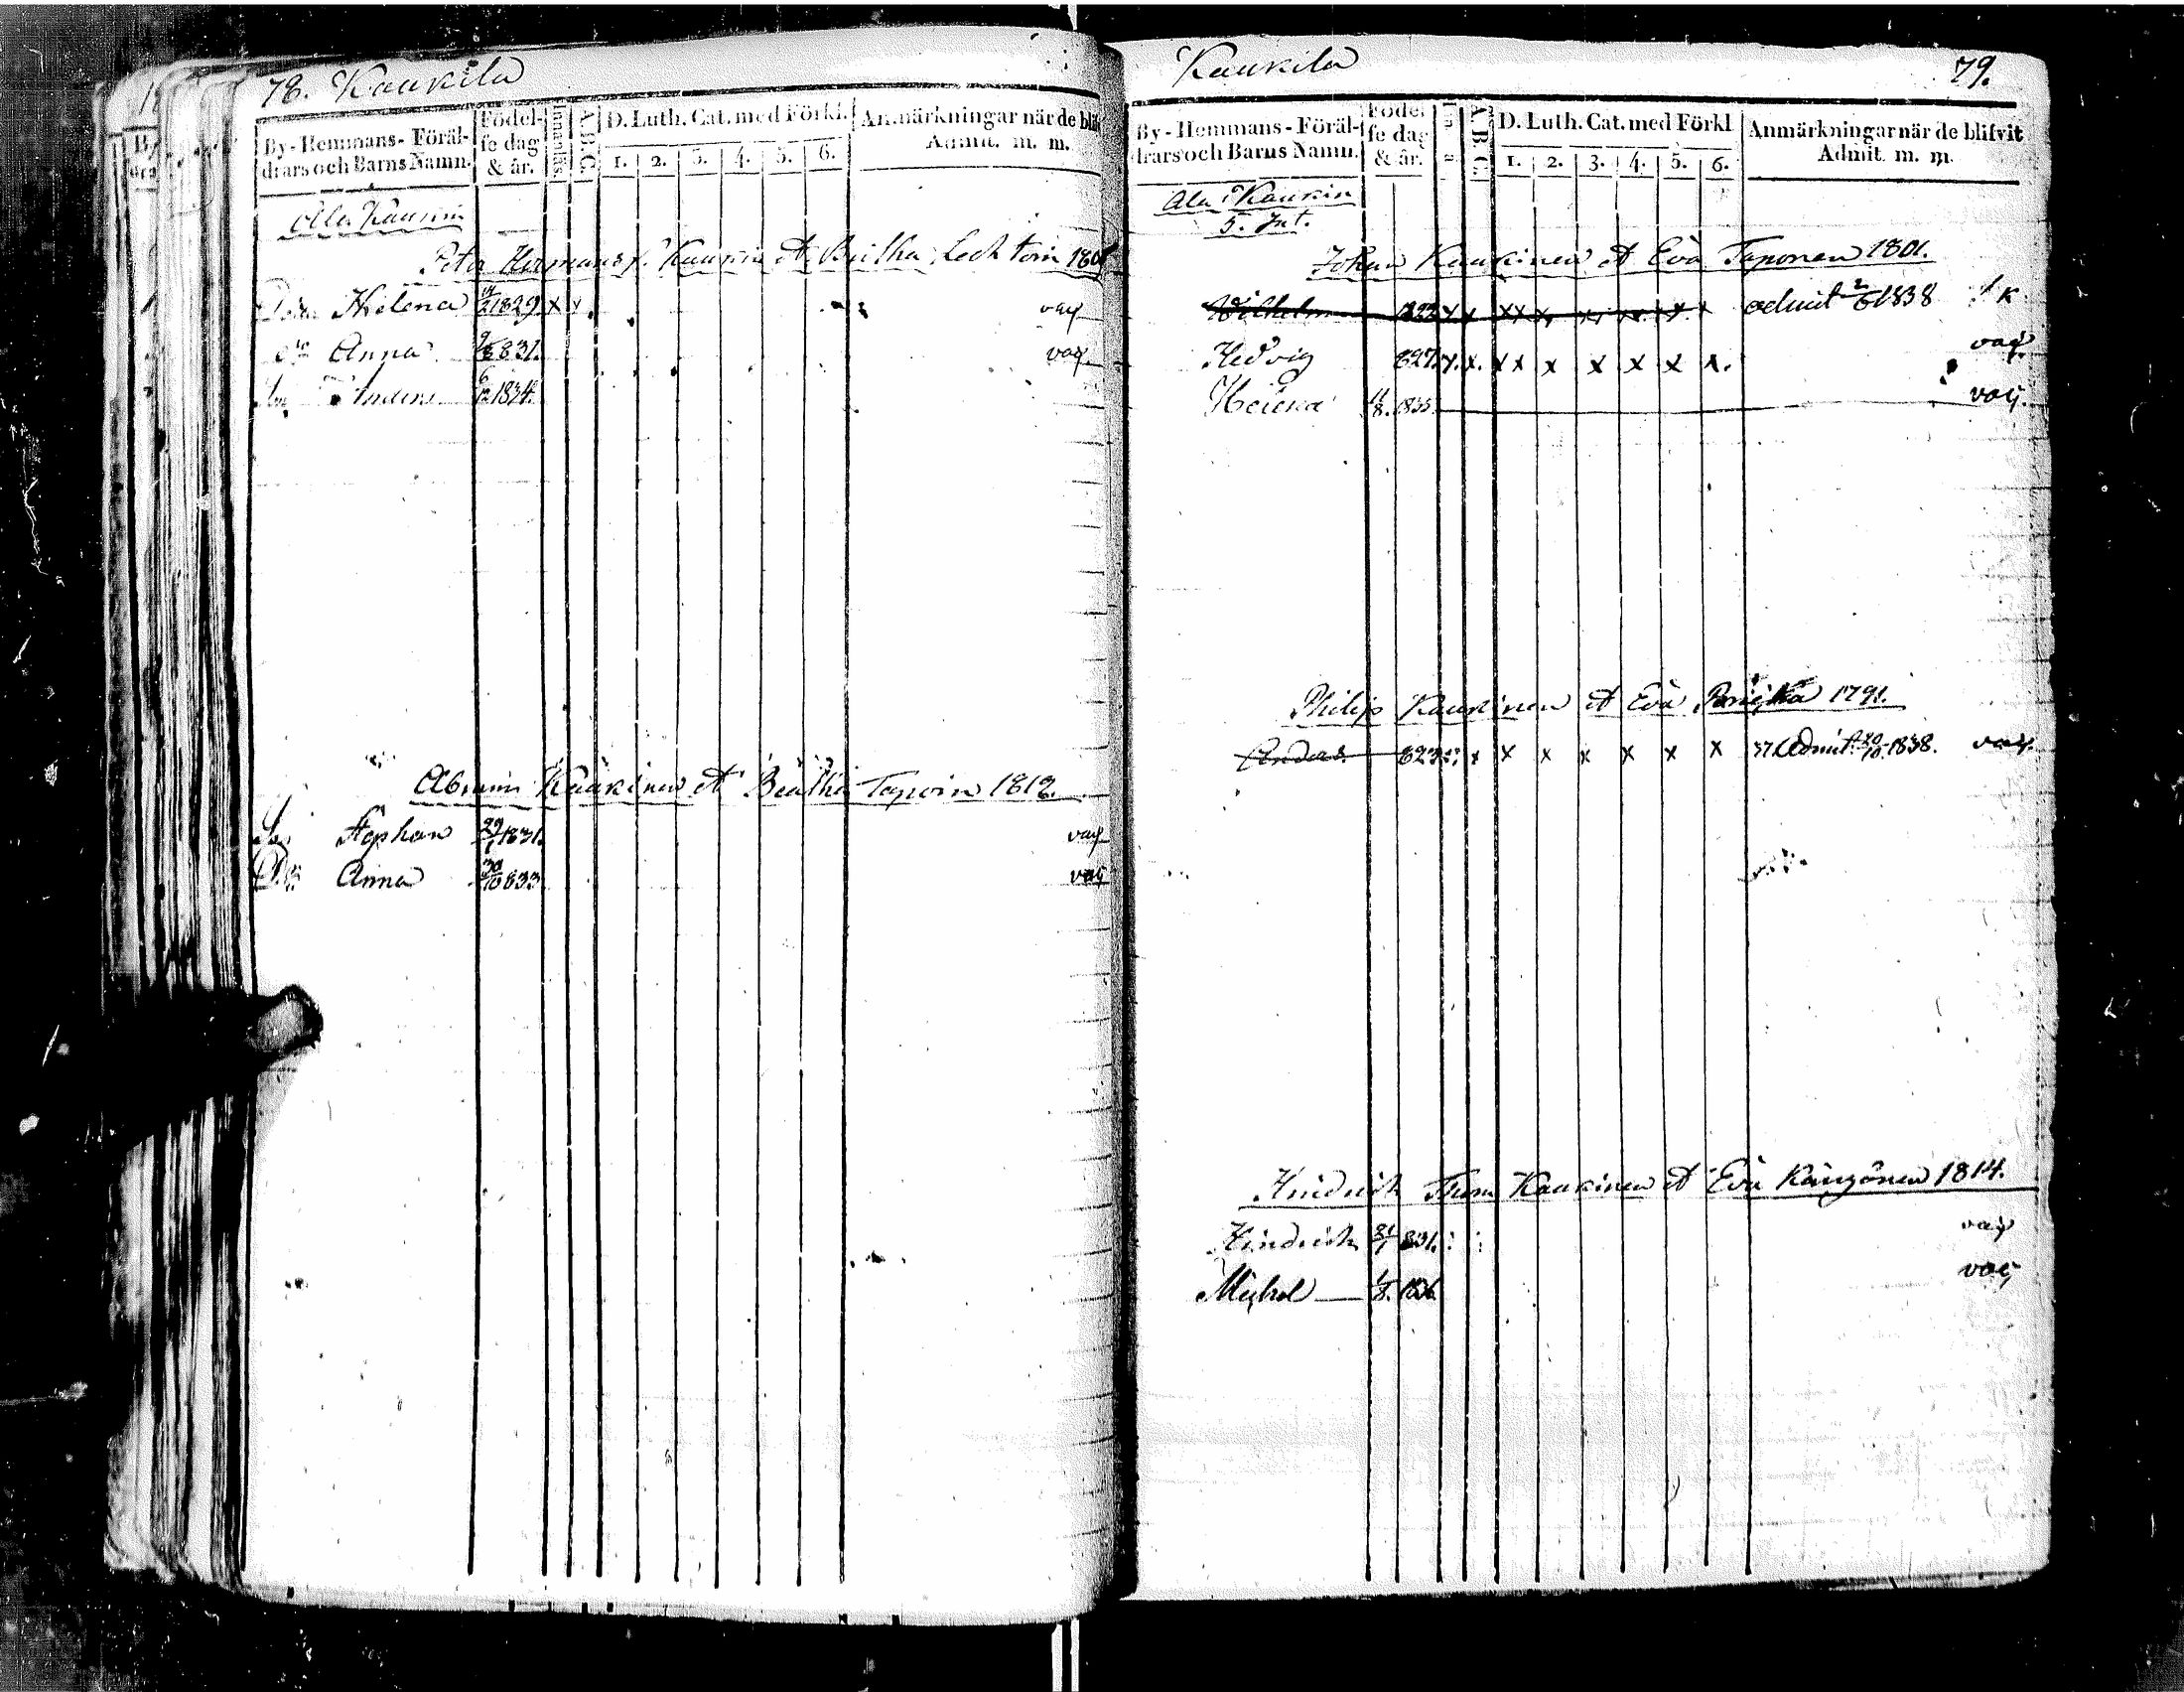 78. Kaukila
By-Hemmans-Föräl-
drars och Barns Namn.
Födel-
se dag
& år.
Innanläs
A.B.C.
D. Luth. Cat. med Förkl.
1. 2. 3. 4. 5. 6.
Anmärkningar när de blif
Admit. m. m.
Peter Hermans s. Kaukin et Britha Lecktoin
Helena 1829 x x vaς
Anna 9/8 831. vaς
Anders 1834.
Kaukinen et Beatha Tapoin 1812.
Stephan 29/1 1831. vaς
Anna 30/10 833 vaς
Kaukila
79.
By-Hemmans-Föräl-
drars och Barns Namn.
Födel-
se dag
& år.
A.B.C.
D. Luth. Cat. med Förkl
1. 2. 3. 4. 5. 6.
Anmärkningar när de blifvit
Admit. m. m.
Ala Kaukin
5. Int.
Johan Kaukinen et Eva Taponen 1801.
Wilhelm 1823 x x xx x x x x x admit 2/6 1838
Hedvig 827. x. x. xx x x x x x. vaς
Helena 11/8. 1835. vaς.
Philip Kaukinen et Eva 1791.
Anders 823 x x x x x x x Admit. 20/10. 1838. vaς.
Hindrich Thom Kaukinen et Eva 1814.
Hindrich 31/1 831. vaς
Michel 1/8. 1836 vaς